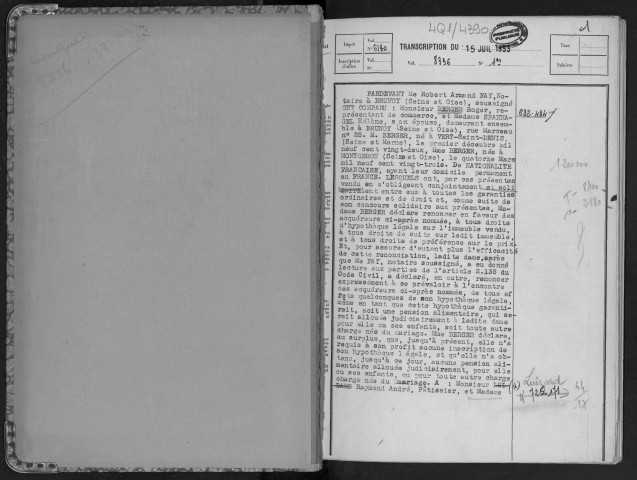 4Q1/4390
1
Dépôt
Vol.
N°
Inscription d'office
Vol.
N°
TRANSCRIPTION DU 15 JUIL 1955
Vol. 8736 N° 1er
Taxe :
Salaires
PARDEVANT Me Robert Armand FAY, No-
taire à BRUNOY (Seine et Oise), soussigné
ONT COMPARU : Monsieur BERGER Roger, re-
présentant de commerce, et Madame
Hélène, son épouse, demeurant ensem-
ble à BRUNOY (Seine et Oise), rue Marceau
n° 28. M. BERGER, né à VERT-Saint-DENIS,
(Seine et Marne), le premier décembre mil
neuf cent vingt-deux, Mme BERGER, née à
MONTGERON (Seine et Oise), le quatorze Mars
mil neuf cent vingt-trois. De NATIONALITE
FRANCAISE, ayant leur domicile permanent
en FRANCE. LESQUELS ont, par ces présentes
vendu en s'obligeant conjointement et soli
dairement entre eux à toutes les garanties
ordinaires et de droit et, comme suite de
son concours solidaire aux présentes, Ma-
dame BERGER déclare renoncer en faveur des
acquéreurs ci-après nommés, à tous droits
d'hypothèque légale sur l'immeuble vendu,
à tous droits de suite sur ledit immeuble,
et à tous droits de préférence sur le prix.
Et, pour assurer d'autant plus l'efficacité
de cette renonciation, ladite dame, après
que Me FAY, notaire soussigné, a eu donné
lecture aux parties de l'article 2.135 du
Code Civil, a déclaré, en outre, renoncer
expressément à se prévaloir à l'encontre
des acquéreurs ci-après nommés, de tous ef
fets quelconques de son hypothèque légale,
même en tant que cette hypothèque garanti-
rait, soit une pension alimentaire, qui se-
rait allouée judiciairement à ladite dame
pour elle ou ses enfants, soit toute autre
charge née du mariage. Mme BERGER déclare,
au surplus, que, jusqu'à présent, elle n'a
requis à son profit aucune inscription de
son hypothèque légale, et qu'elle n'a ob-
tenu, jusqu'à ce jour, aucune pension ali-
mentaire allouée judiciairement, pour elle
ou ses enfants, ou pour toute autre charge
charge née du mariage. A : Monsieur
Raymond André, Pâtissier, et Madame